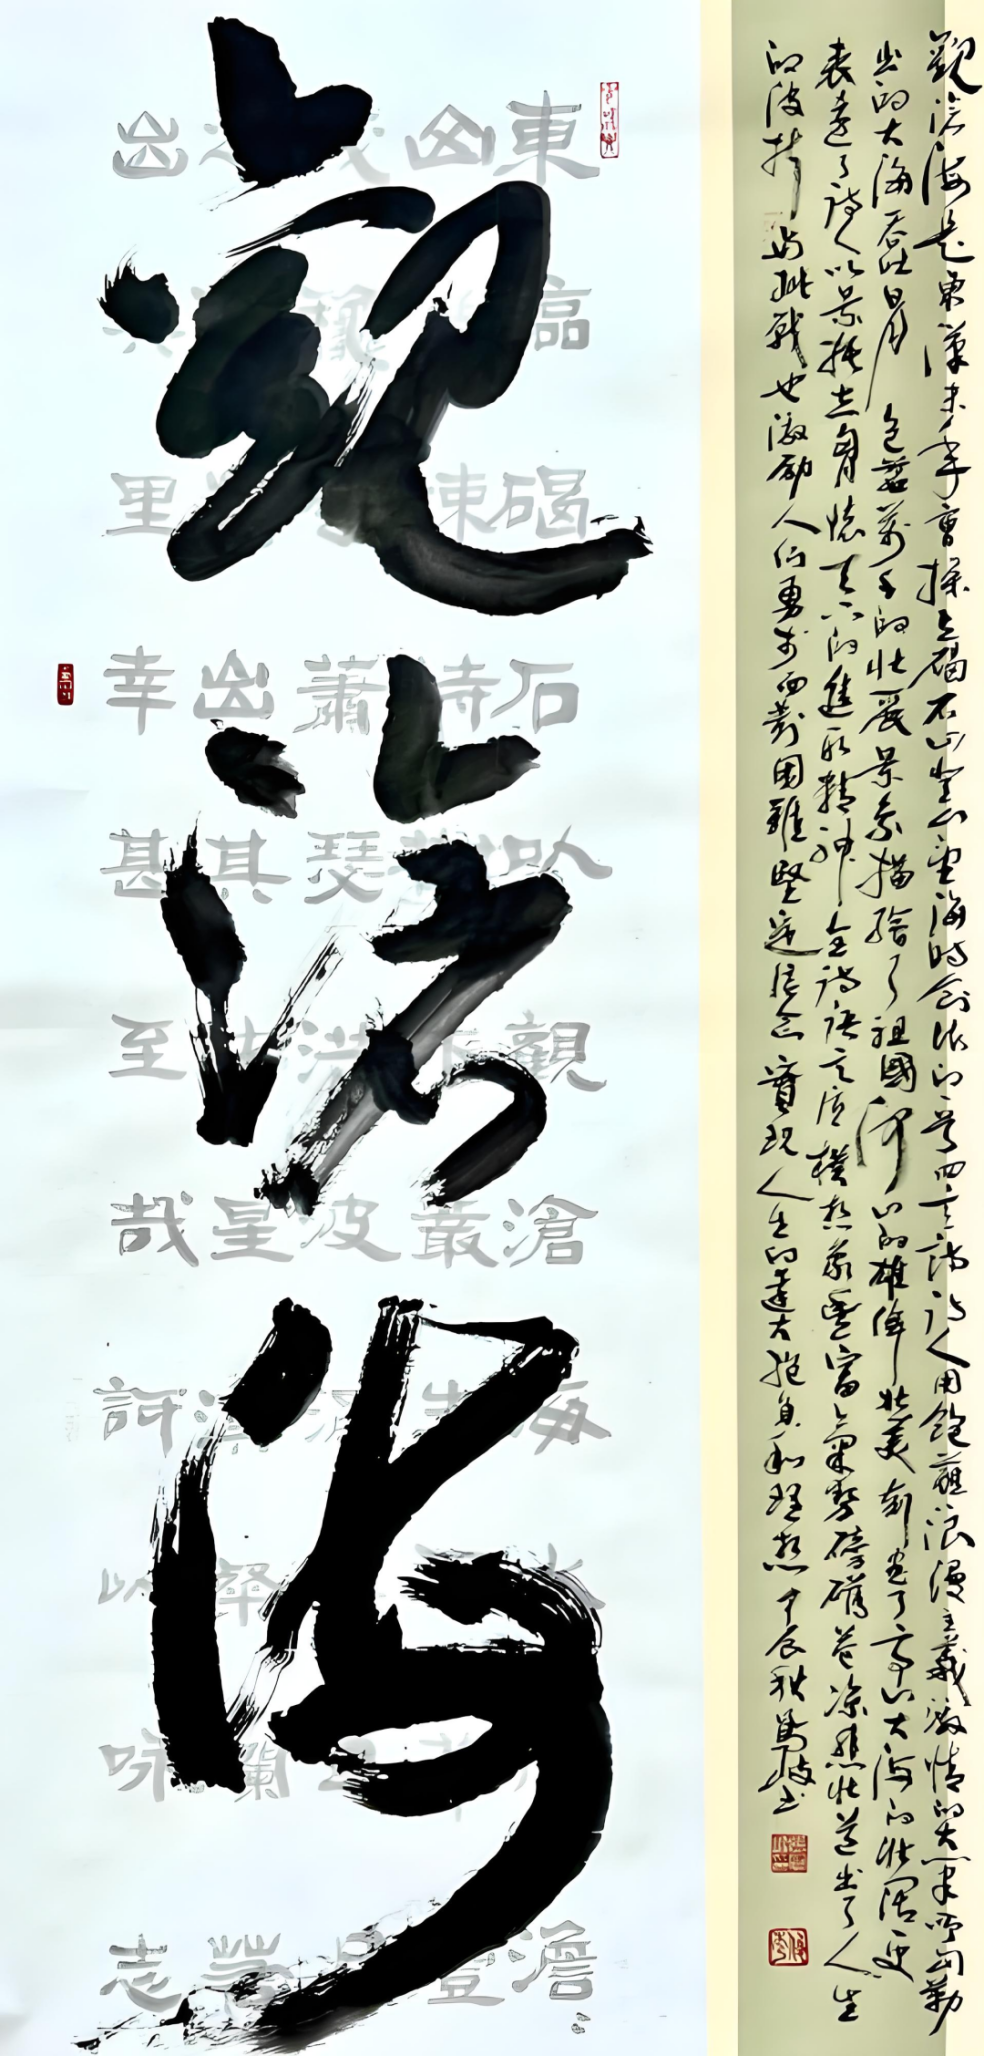 觀滄海
東臨碣石以觀滄海水澹
山竦峙叢生豐
茂蕭瑟洪波
之出其星漢燦爛
出其里幸甚至哉訶以咏志
觀滄海是東漢末年曹操上碣石山登山望海時創作的一首四言詩詩人用飽蘸浪漫主義激情的大筆所勾勒
出的大海吞吐日月包蘊萬千的壯麗景象描繪了祖國河山的雄偉壯美刻畫了高山大海的壯闊更
表達了詩人以景抒志胸懷天下的進取精神全詩語言質樸想象豐富氣勢磅礴蒼涼悲壯道出了人生
的波折與挑戰也激勵人們勇於面對困難堅定信念實現人生的遠大抱負和理想甲辰秋書